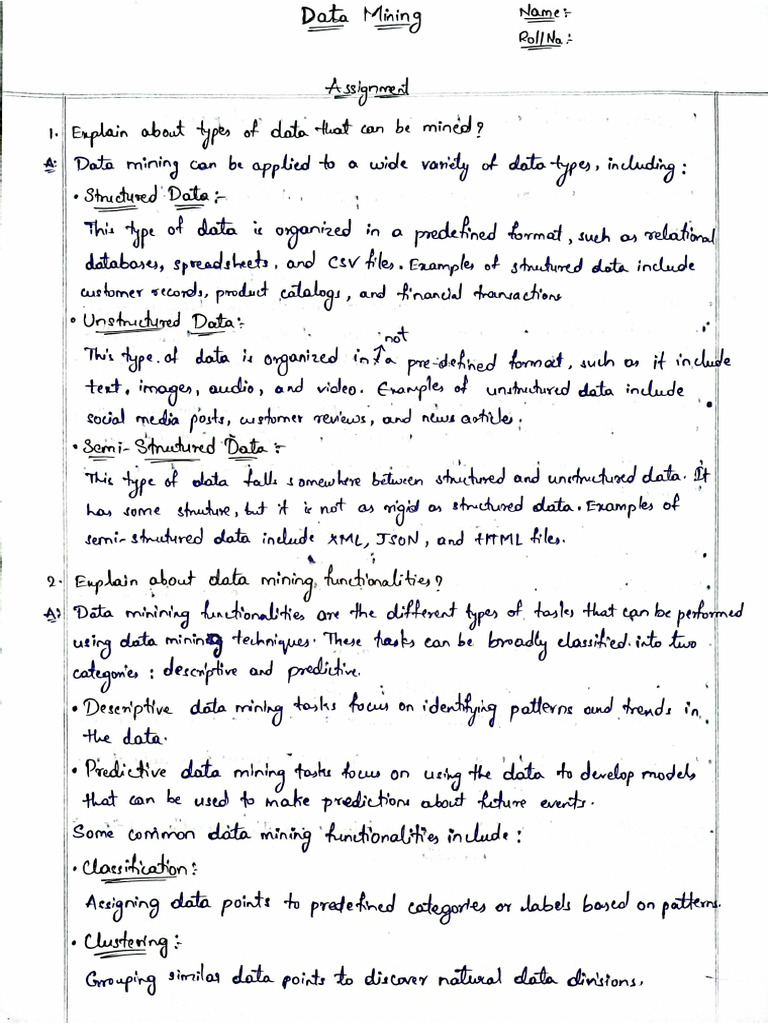 Data Mining
Name:-
Roll No:-
Assignment
1. Explain about types of data that can be mined?
A: Data mining can be applied to a wide variety of data types, including:
• Structured Data:-
This type of data is organized in a predefined format, such as relational
databases, spreadsheets, and CSV files. Examples of structured data include
customer records, product catalogs, and financial transactions
• Unstructured Data:-
not
This type of data is organized in ↑ a pre-defined format, such as it include
text, images, audio, and video. Examples of unstructured data include
social media posts, customer reviews, and news article.
• Semi-Structured Data:-
This type of data falls somewhere between structured and unstructured data. It
has some structure, but it is not as rigid as structured data. Examples of
semi-structured data include XML, JSON, and HTML files.
2. Explain about data mining functionalities?
A: Data minining functionalities are the different types of tasks that can be performed
using data mining techniques. These tasks can be broadly classified into two
categories: descriptive and predictive.
• Descriptive data mining tasks focus on identifying patterns and trends in
the data.
• Predictive data mining tasks focus on using the data to develop models
that can be used to make predictions about future events.
Some common data mining functionalities include:
• Classification:-
Assigning data points to predefined categories or labels based on patterns.
• Clustering:-
Grouping similar data points to discover natural data divisions.